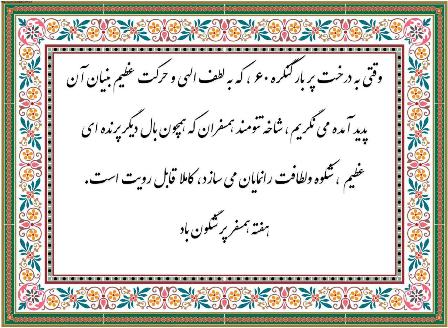 وقتی به درخت پر بار کنگره ۶۰ ، که به لطف الهی و حرکت عظیم بنیان آن
پدید آمده می نگریم ، شاخه تنومند همسفران که همچون بال دیگر پرنده ای
عظیم ، شکوه ولطافت رانمایان می سازد، کاملا قابل رویت است.
هفته همسفر پر شگون باد